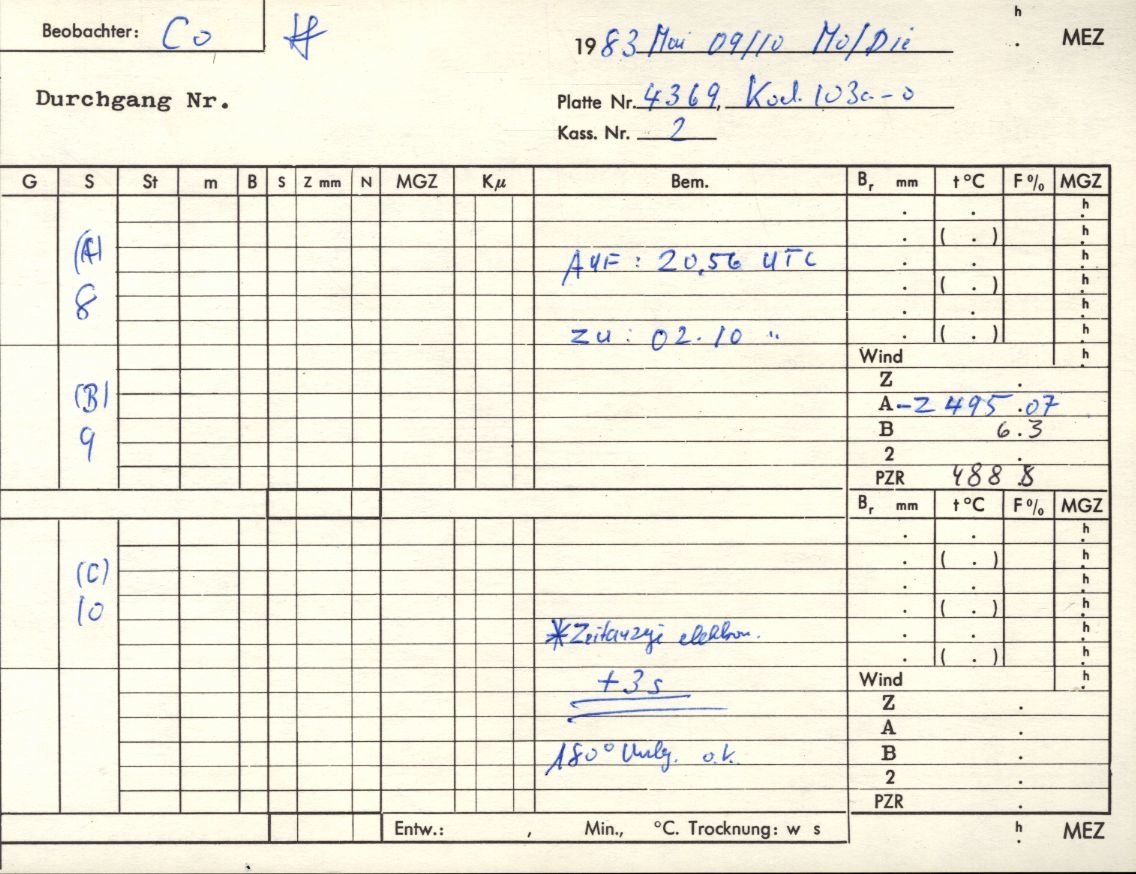 h
Beobachter: Co #
1983 Mai 09/10 Mo/Die . MEZ
Durchgang Nr.
Platte Nr. 4369, Kod. 103a-o
Kass. Nr. 2
G S St m B S Z mm N MGZ Kμ Bem. Br mm t °C F % MGZ
. . h
(A) . ( . ) h
AUF : 20.56 UTC . . h
8 . ( . ) h
. . h
zu : 02.10 " . ( . ) h
Wind h
Z .
(B) A -2 495 .07
9 B 6.3
2 .
PZR 488 8
Br mm t °C F % MGZ
. . h
(C) . ( . ) h
. . h
10 . ( . ) h
* elektron. . . h
. ( . ) h
+3s Wind h
Z .
A .
180° o.k. B .
2 .
PZR .
Entw.: , Min., °C. Trocknung: w s h
. MEZ